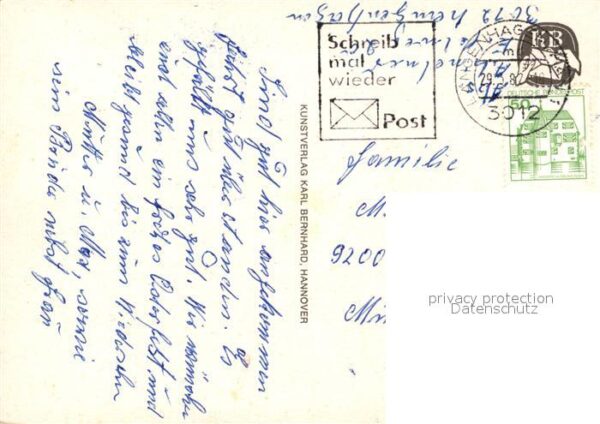 Sind gut hier angekommen
Fahrt gut überstanden. Es
gefällt uns sehr gut. Wir wünschen
euch allen ein frohes Osterfest und
bleibt gesund bis zum Wiedersehn
Mutter u. Max, sowie
sein Bruder nebst Frau
KUNSTVERLAG KARL BERNHARD, HANNOVER
3012
Schreib
mal
wieder
Post
LANGENHAGEN
29.3.82
3012
KB
DEUTSCHE BUNDESPOST
50
Familie
M
9200
Mü
privacy protection
Datenschutz